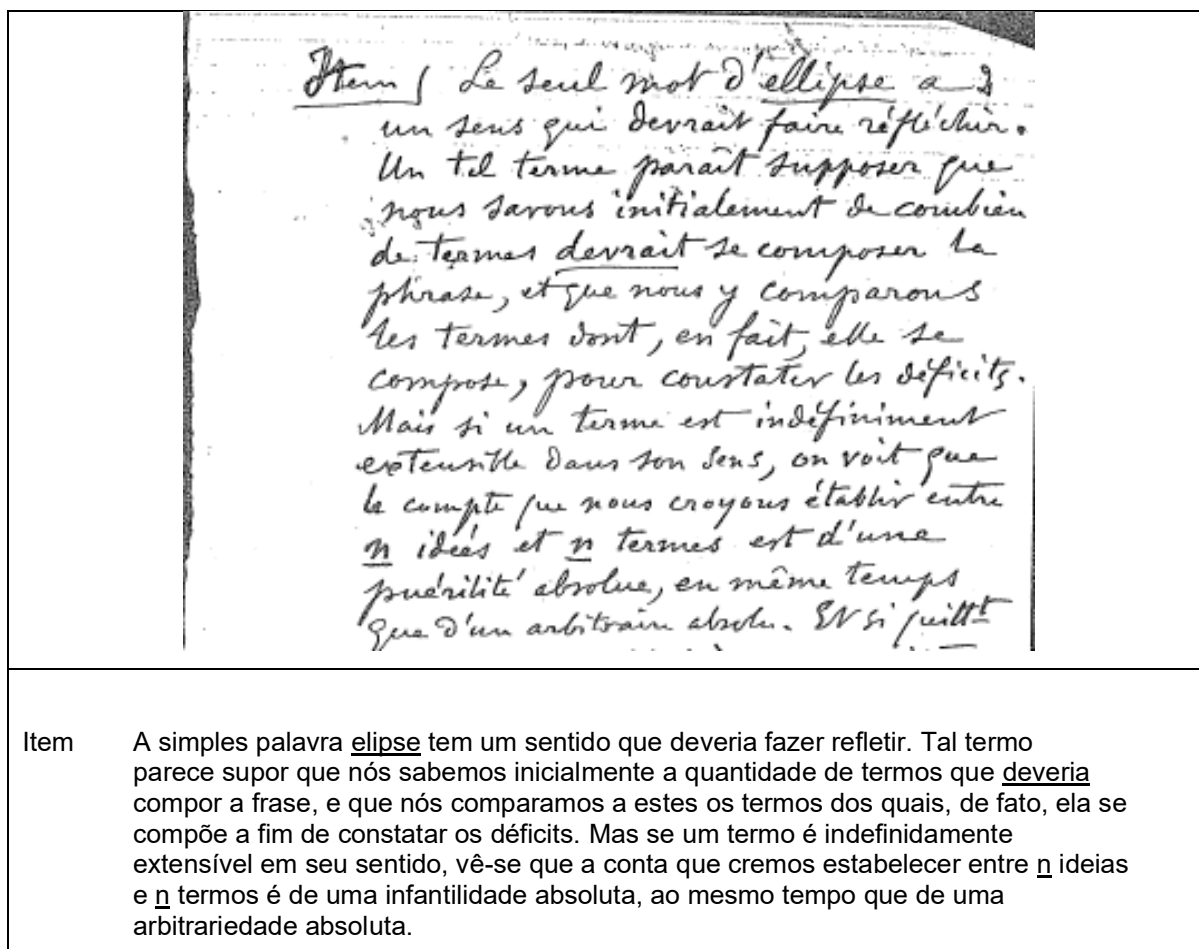 Item ( Le seul mot d'ellipse a
un sens qui devrait faire réfléchir.
Un tel terme paraît supposer que
nous savons initialement de combien
de termes devrait se composer la
phrase, et que nous y comparons
les termes dont, en fait, elle se
compose, pour constater les déficits.
Mais si un terme est indéfiniment
extensible dans son sens, on voit que
le compte que nous croyons établir entre
n idées et n termes est d'une
puérilité absolue, en même temps
que d'un arbitraire absolu. Et si quittt
Item A simples palavra elipse tem um sentido que deveria fazer refletir. Tal termo
parece supor que nós sabemos inicialmente a quantidade de termos que deveria
compor a frase, e que nós comparamos a estes os termos dos quais, de fato, ela se
compõe a fim de constatar os déficits. Mas se um termo é indefinidamente
extensível em seu sentido, vê-se que a conta que cremos estabelecer entre n ideias
e n termos é de uma infantilidade absoluta, ao mesmo tempo que de uma
arbitrariedade absoluta.